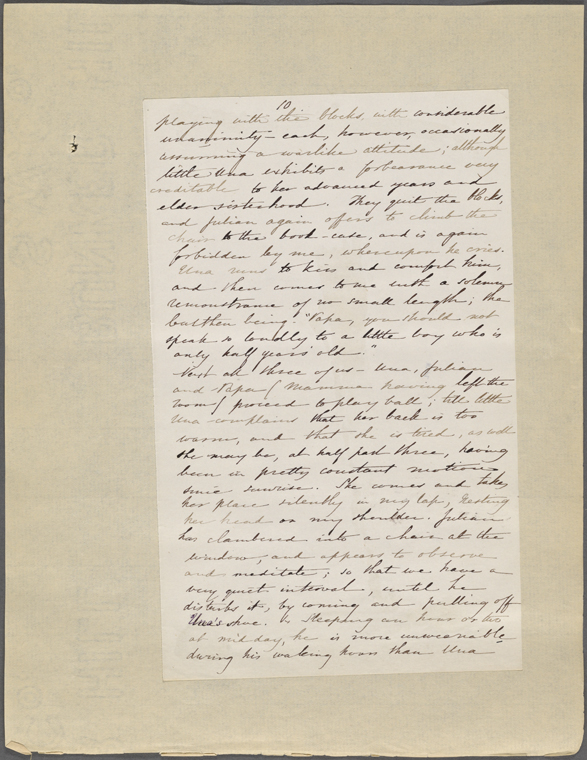 10
playing with the blocks, with considerable
unanimity – each, however, occasionally
assuming a warlike attitude; although
little Una exhibits a forbearance very
creditable to her advanced years and
elder sisterhood. They quit the blocks,
and Julian again offers to climb the
chair to the book-case, and is again
forbidden by me, whereupon he cries.
Una runs to kiss and comfort him,
and then comes to me with a solemn
remonstrance of no small length; the
burthen being. "Papa, you should not
speak so loudly to a little boy who is
only half years old."
Next all three of us – Una, Julian
and Papa (Mamma having left the
room) proceed to play ball; till little
Una complains that her back is too
warm, and that she is tired, as well
she may be, at half past three, having
been in pretty constant motion
since sunrise. She comes and takes
her place silently in my lap, resting
her head on my shoulder. Julian
has clambered into a chair at the
window, and appears to observe
and meditate; so that we have a
very quiet interval, until he
disturbs it, by coming and pulling off
Una's shoe. Sleeping an hour or two
at mid-day, he is more unweariable
during his waking hours than Una